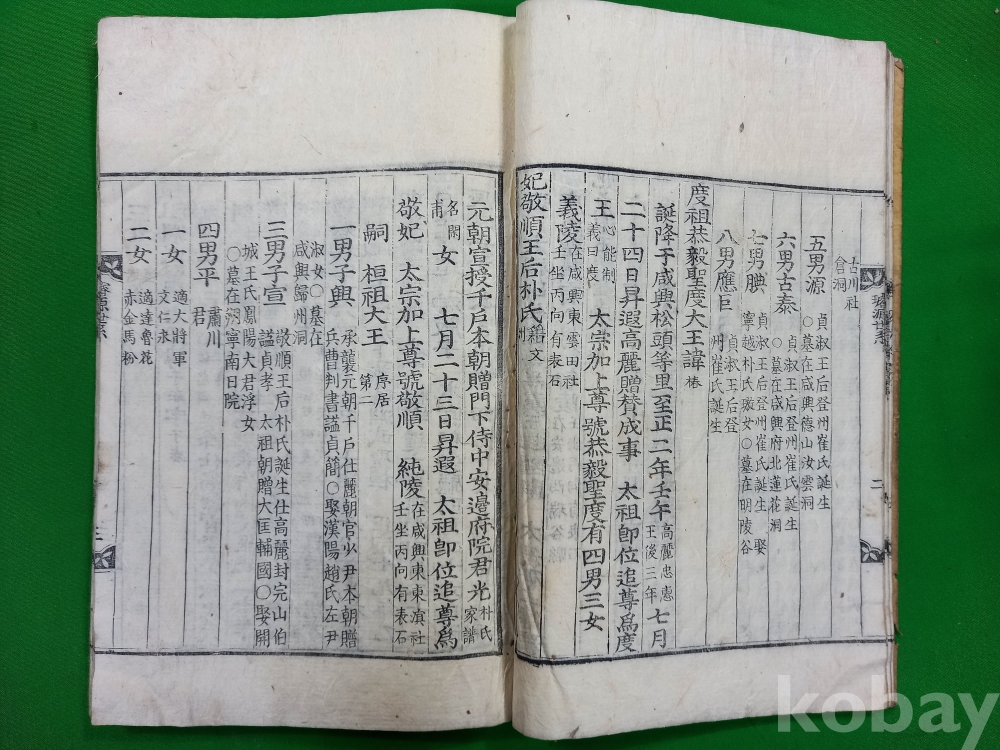 古川社
倉洞
五男源
貞淑王后登州崔氏誕生
○墓在咸興德山汝雲洞
六男古泰
貞淑王后登州崔氏誕生
○墓在咸興府北蓮花洞
七男腆
貞淑王后登州崔氏誕生 娶
寧越朴氏璥女○墓在明陵谷
八男應巨
貞淑王后登
州崔氏誕生
度祖恭毅聖度大王諱椿
誕降于咸興松頭等里至正二年壬午
高麗忠惠
王後三年
七月
二十四日昇遐高麗贈贊成事 太祖卽位追尊爲度
王
心能制
義曰度
太宗加上尊號恭毅聖度有四男三女
義陵
在咸興東雲田社
壬坐丙向有表石
妃敬順王后朴氏
籍文
州
元朝宣授千戶本朝贈門下侍中安邊府院君光
朴氏
家譜
名閎
甫
女 七月二十三日昇遐 太祖卽位追尊爲
敬妃 太宗加上尊號敬順 純陵
在咸興東東滇社
壬坐丙向有表石
嗣 桓祖大王
序居
第二
一男子興
承襲元朝千戶仕麗朝官少尹本朝贈
兵曹判書謚貞簡○娶漢陽趙氏左尹
淑女○墓在
咸興歸州洞
三男子宣
敬順王后朴氏誕生仕高麗封完山伯
謚貞孝 太祖朝贈大匡輔國○娶開
城王氏鳳陽大君浮女
○墓在朔寧南日院
四男平
肅川
君
一女
適大將軍
文仁永
二女
適達魯花
赤金馬粉
璿源世系
二
三
kobay